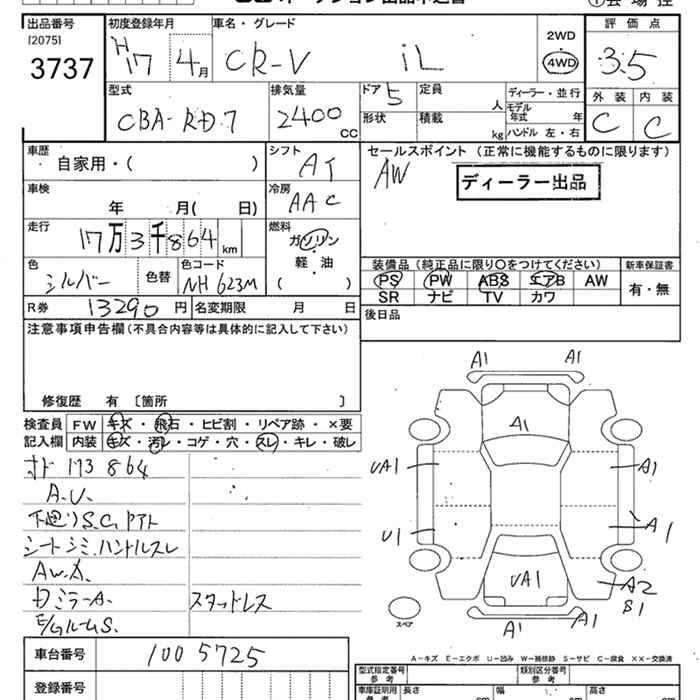 出品番号 初度登録年月 車名・グレード 評価点
[2075]
3737
H17 4月 CR-V iL
2WD
4WD
3.5
型式 排気量 ドア 定員 ディーラー・並行 外装 内装
CBA-RD7 2400 CC 5 人
モデル年式 年
形状 積載 kg ハンドル 左・右
C C
車歴 シフト セールスポイント (正常に機能するものに限ります)
自家用・( ) AT AW
ディーラー出品
車検 冷房
年 月( 日) AAC
走行 燃料
17万3千864km ガソリン
軽・油
( )
色 色替 色コード
シルバー NH623M
装備品(純正品に限り○をつけてください) 新車保証書
PS PW ABS エアB AW 有・無
SR ナビ TV カワ
R券 13290 円 名変期限 月 日
後日品
注意事項申告欄(不具合内容等は具体的に記入して下さい)
修復歴 有 〔箇所 〕
検査員 FW キズ・飛石・ヒビ割・リペア跡・×要
記入欄 内装 キズ・汚レ・コゲ・穴・スレ・キレ・破レ
オド 173864
A.U.
下廻リS.C.
シートシミ.ハンドルスレ
AW.A.
スタットレス
A1 A1
A1
UA1 A1
U1 A1
UA1
A2
B1
A1 A1
スペア
車台番号 1005725
A-キズ E-エクボ U-凹み W-補修跡 S-サビ C-腐食 XX-交換済
登録番号
型式指定番号 参考 類別区分番号 参考
車庫証明用 参考 長さ cm 幅 cm 高さ cm